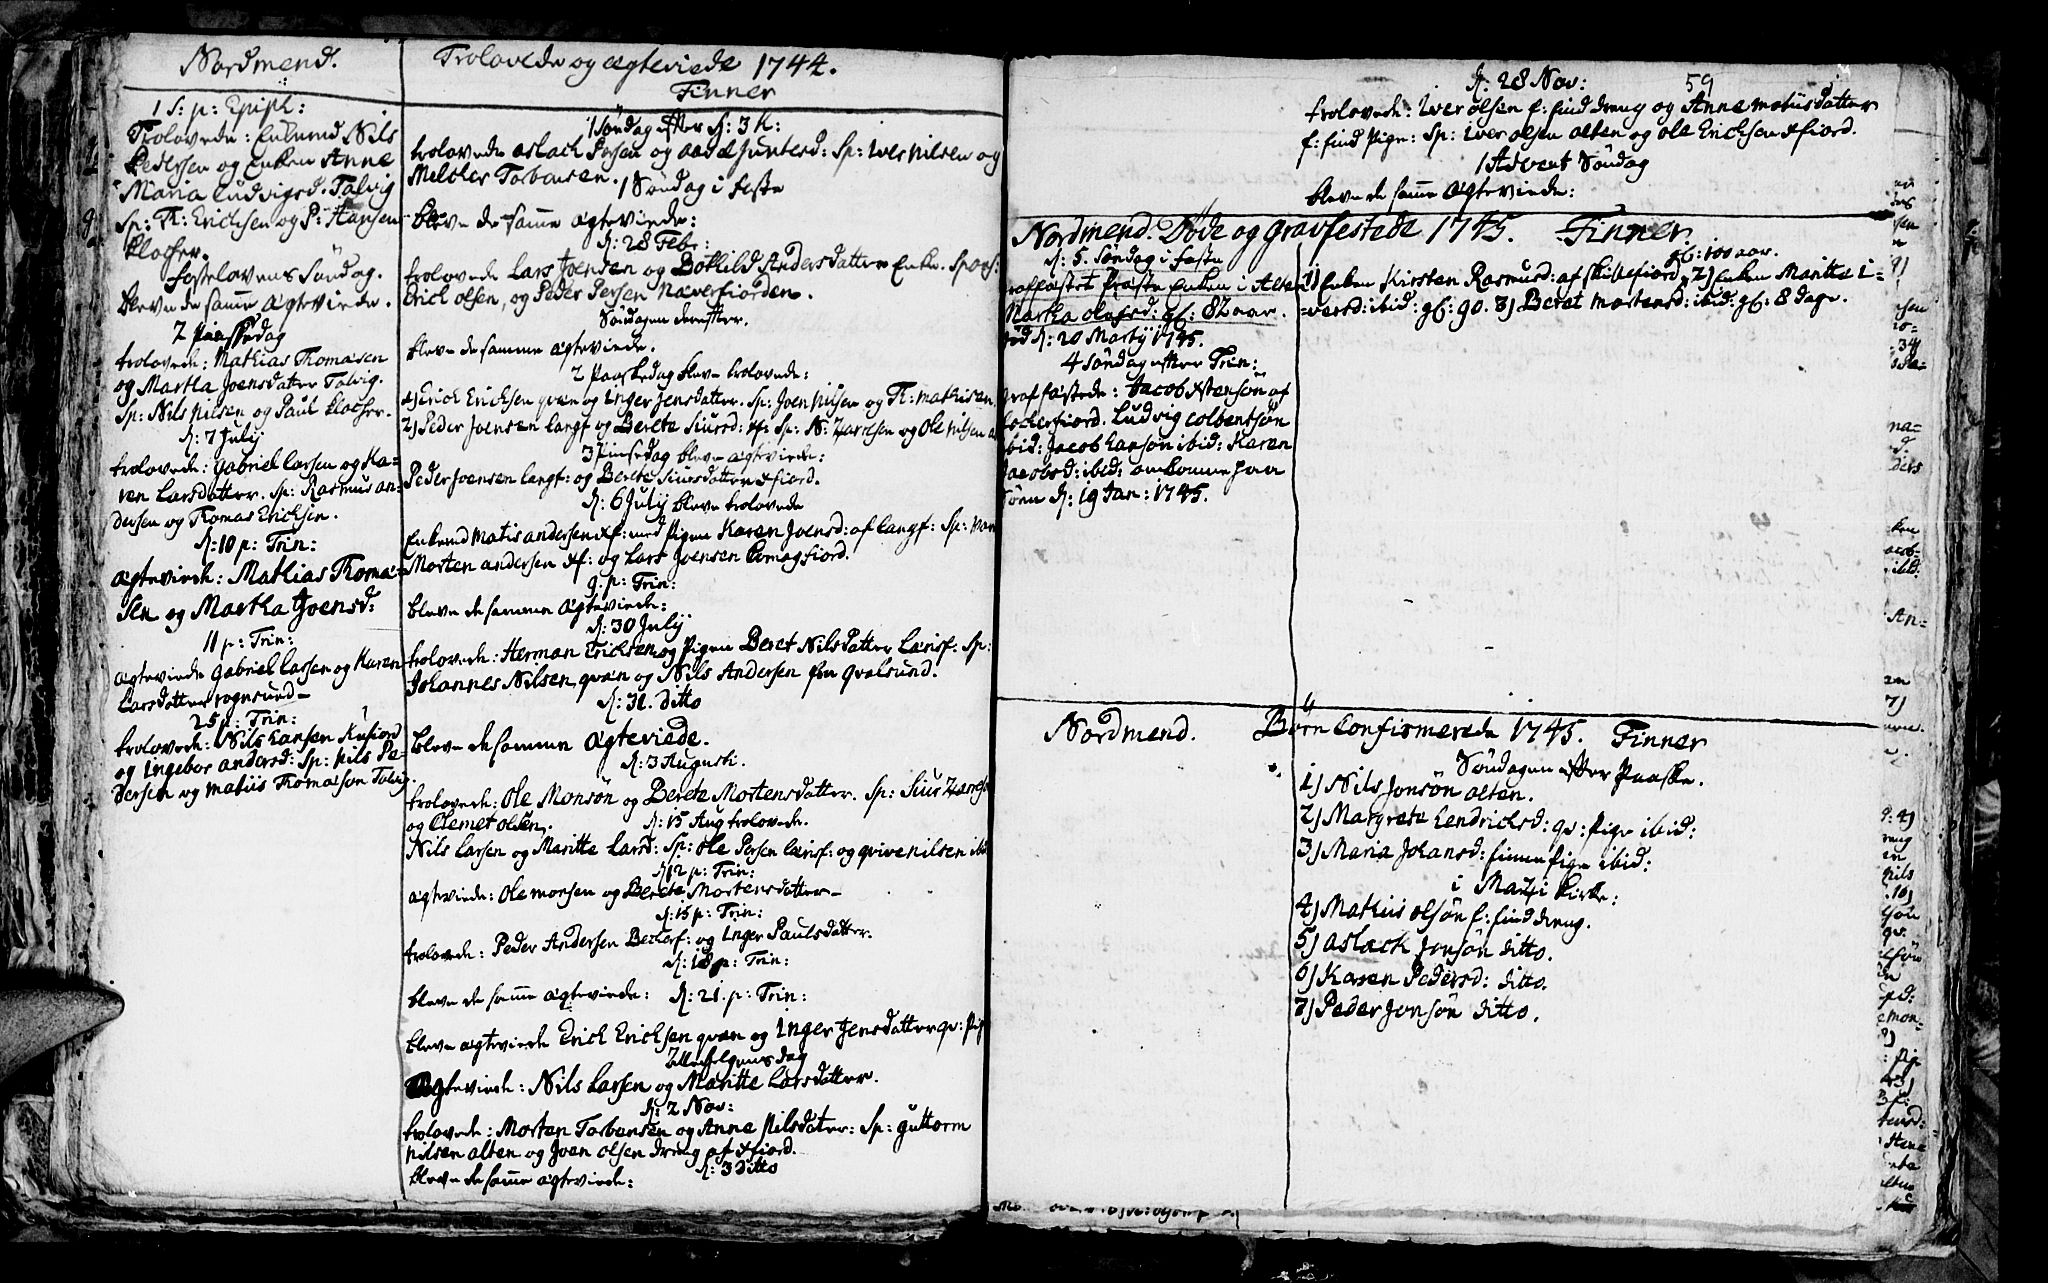 Nordmend.
1 S: p: Epiph:
Trolovede: Enkemd Nils
Pedersen og Enken Anne
Maria Ludvigsd. Talvig
Sp: Th: Erichsen og P: Hansen
Klocker.
Fastelavens Søndag.
bleve de samme ægteviede.
2 Paaskedag
trolovede: Mathias Thomasen
og Martha Joensdatter Talvig.
Sp: Nils Nilsen og Paul Klocker.
d: 7 July
trolovede: Gabriel Larsen og Ka-
ren Larsdatter. Sp: Rasmus An-
dersen og Thomas Erichsen.
d: 10 p: Trin:
ægteviede: Mathias Thoma-
sen og Martha Joensd:
11 p: Trin:
ægteviede Gabriel Larsen og Karen
Larsdatter rognsund-
25 p: Trin:
trolovede: Nils Hansen Kufiord
og Ingebor Andersd: Sp: Nils Pe-
dersen og Matiis Thomasøn Talvig.
Trolovede og ægteviede 1744.
Finner
1 Søndag efter h: 3 K:
trolovede Aslach Persen og Aadel Juntersd: Sp: Iver Nilsen og
Melcher Torbensen.
1 Søndag i faste
bleve de samme ægteviede:
d: 28 Febr:
trolovede Lars Joensen og Bothild Andersdatter Enke. Spons:
Erich Olsen, og Peder Persen Næverfiorden.
Søndagen derefter.
bleve de samme ægteviede.
2 Paaskedag bleve trolovede:
1) Erich Erichsen qvæn og Inger Jensdatter. Sp: Joen Nilsen og Th: Mathisen
2) Peder Joensen Langf og Berete Siursd: xf: Sp: N: Larsen og Ole Nilsen
3 Pinsedag bleve ægteviede:
Peder Joensen Langf: og Berete Siursdatter xfiord.
d: 6 July bleve trolovede
Enkemd Matis Andersen xf: med Pigen Karen Joensd: af Langf: Sp:
Morten Andersen xf: og Lars Joensen Komagfiord.
9. p: Trin:
bleve de sammen ægteviede:
d: 30 July.
trolovede: Herman Erichsen og Pigen Beret Nilsdatter Lærisf: Sp:
Johannes Nilsen qvæn og Nils Andersen fra Qvalsund.
d: 31. Ditto
bleve de sammen ægteviede.
d: 3 Augusti.
trolovede: Ole Monsøn og Berete Mortensdatter. Sp: Siur
og Clemet Olsen.
d: 15 Aug trolovede.
Nils Larsen og Maritte Larsd: Sp: Ole Persen Lærisf: og Qvive Nilsen
d 12 p: Trin:
ægteviede: Ole Monsen og Berete Mortensdatter-
d: 15 p: Trin:
trolovede: Peder Andersen Beckerf: og Inger Paulsdatter.
d: 18 p: Trin:
bleve de samme ægteviede:
d: 21. p: Trin:
bleve ægteviede Erich Erichsen qvæn og Inger Jensdatter qv: Pig
Allehelgens dag
Ægteviede: Nils Larsen og Maritte Larsdatter.
d: 2 Nov:
trolovede: Morten Torbensen og Anne Nilsdater: Sp: Guttorm
Nilsen Alten og Joen Olsen dreng af xfiord.
d: 3 Ditto
bleve de samme ægteviede:
59
d: 28 Nov:
trolovede: Iver Olsen f: find dreng og Anne Matiisdatter
f: find Pige: Sp: Iver Olsen Alten og Ole Erichsen xfiord.
1 Advent Søndag
bleve de samme ægteviede:
Nordmend. Døde og gravfestede 1745. Finner
d: 5. Søndag i faste
Præste Enken i Alten
Marka Olafsd: gl: 82 aar.
død d: 20 Marty 1745.
4 Søndag efter Trin:
graffæstede: Jacob xstensøn af
Ludvig Colbentsøn
ibid: Jacob Larsøn ibid: Karen
Jacobsd: ibid: omkomne paa
Søen d: 19 Jan: 1745.
gl: 100 aar.
1) Enken Kirsten Rasmusd: af skillefiord, 2) Enken Maritte I-
versd: ibid: gl: 90. 3) Beret Mortensd: ibid: gl: 8 dage.
Nordmend. Børn Confirmerede 1745. Finner
Søndagen efter Paaske.
1) Nils Jonsøn Alten.
2) Margrete Hendrichsd: qv: Pige ibid:
3) Maria Johansd: finne Pige ibid:
i Mazi Kirke:
4) Mathiis Olsøn f: find dreng.
5) Aslack Jonsøn ditto.
6) Karen Pedersd: ditto.
7) Peder Jonsøn ditto.